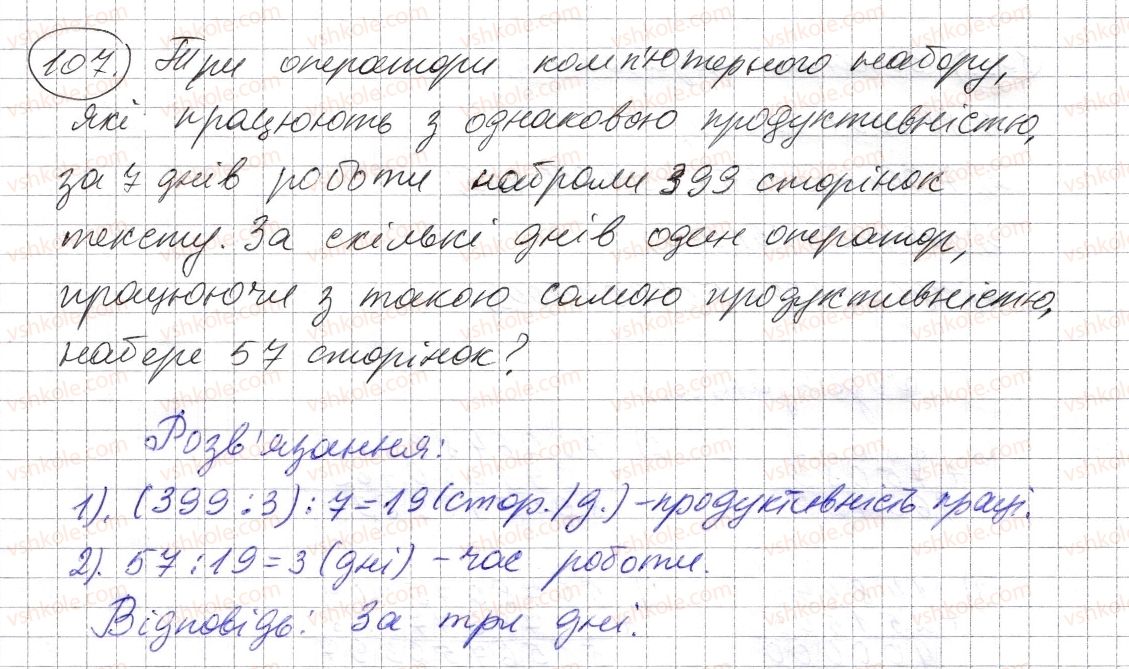 107. Три оператори комп'ютерного набору,
які працюють з однаковою продуктивністю,
за 7 днів роботи набрали 399 сторінок
тексту. За скільки днів один оператор,
працюючи з такою самою продуктивністю,
набере 57 сторінок?
Розв'язання:
1). (399:3):7=19(стор./д.)-продуктивність праці.
2). 57:19=3(дні) - час роботи.
Відповідь: За три дні.